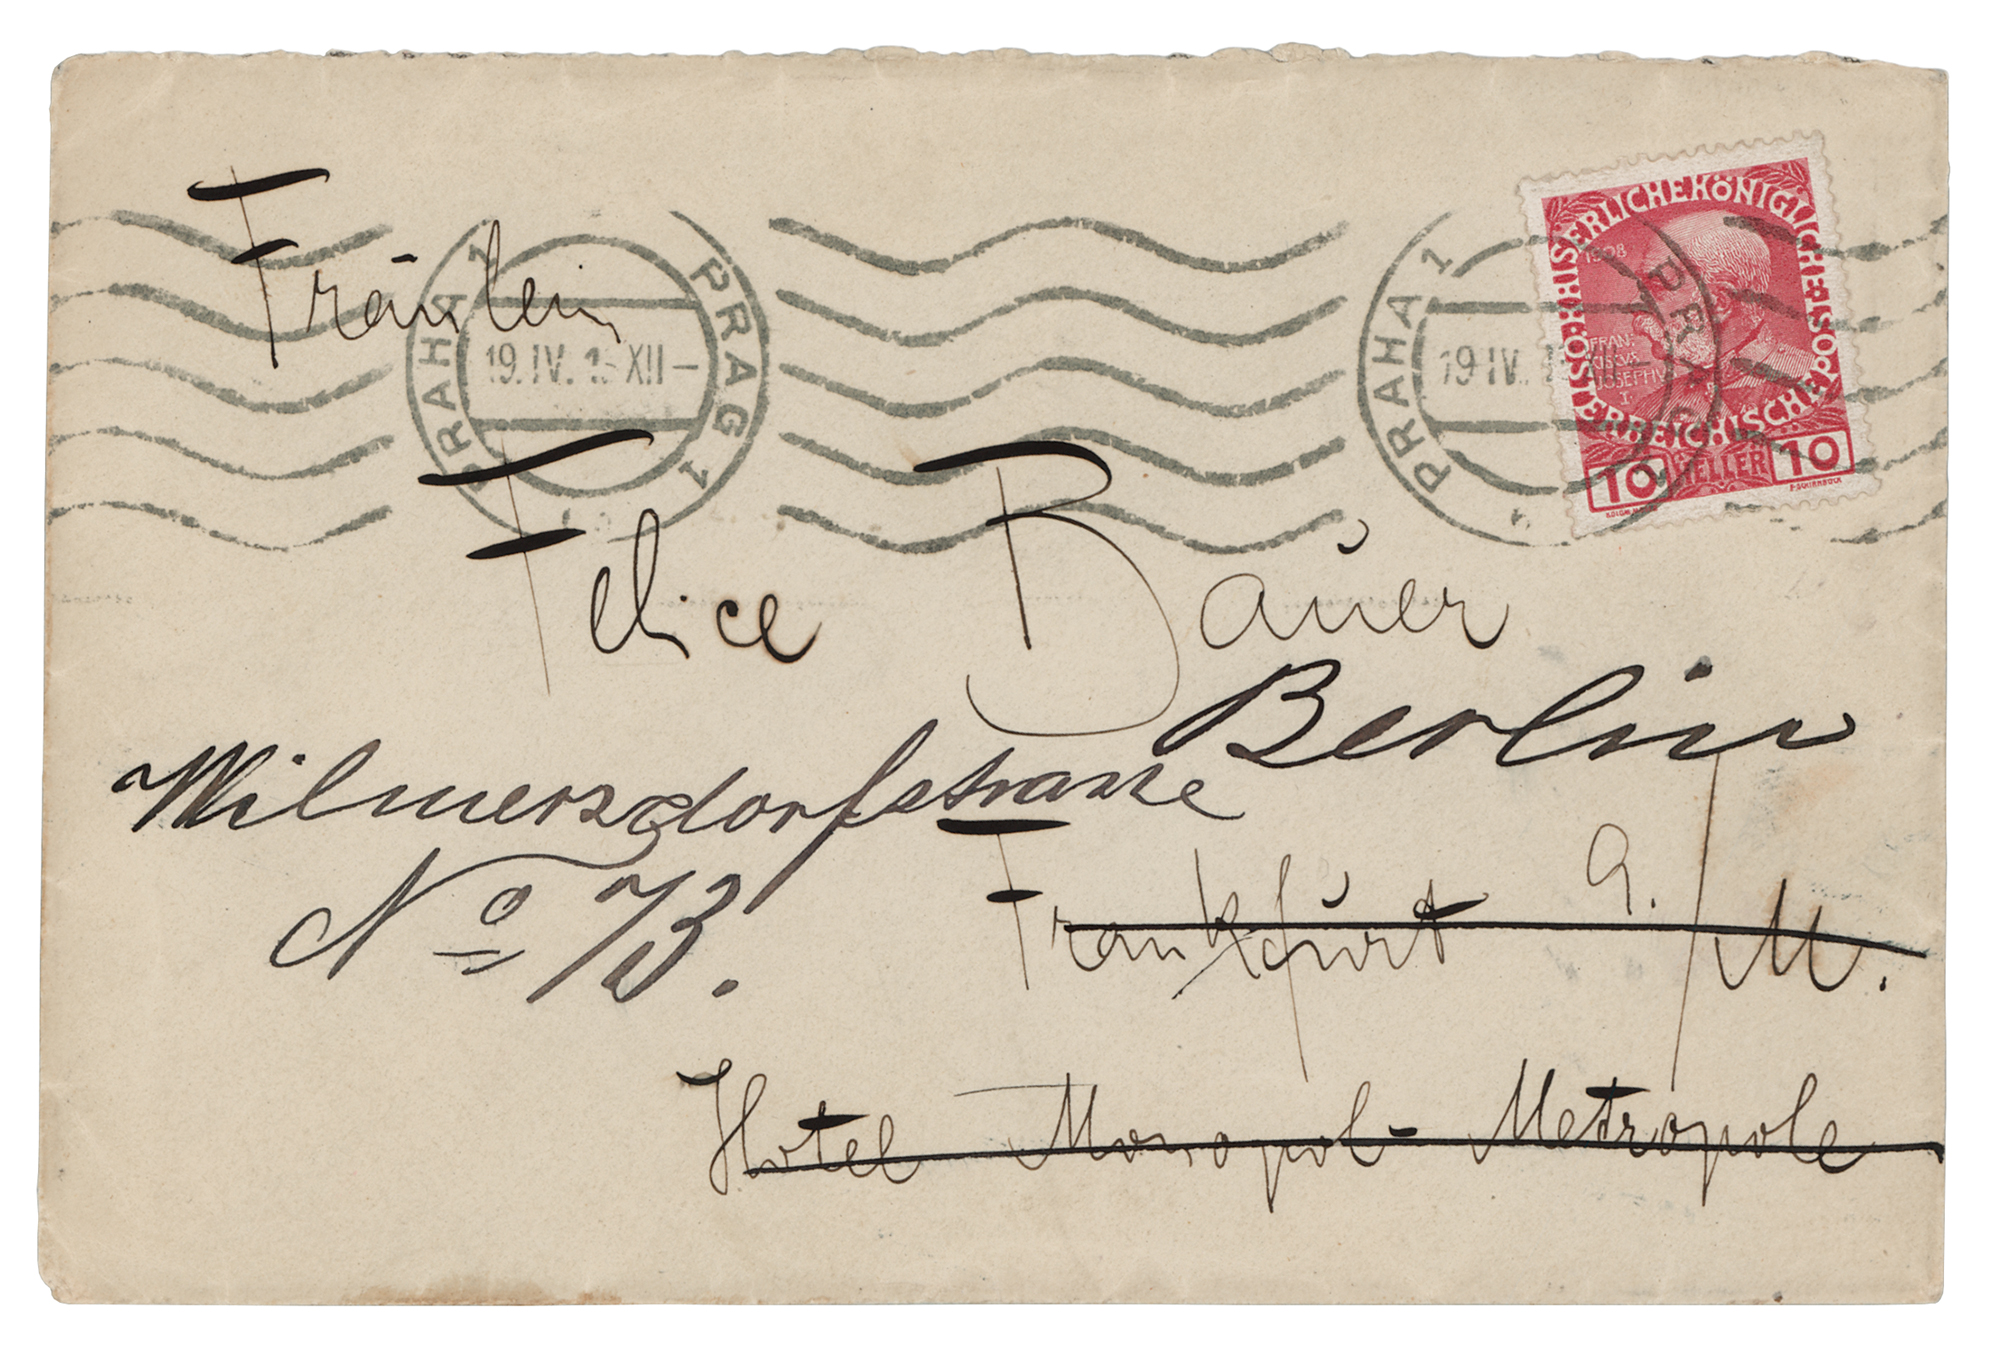 Fräulein
PRAHA 1 PRAG 1
19.IV.1 XII-
PRAHA 1 PR
19.IV. XII-
KAISERLICHE KÖNIGLICHE
ÖSTERREICHISCHE POST
1908
FRAN-
CISCVS
IOSEPHV
I
10 HELLER 10
Felice Bauer
Berlin
Wilmersdorfstrasse
No 73.
Frankfurt a/M.
Hotel Monopol-Metropole